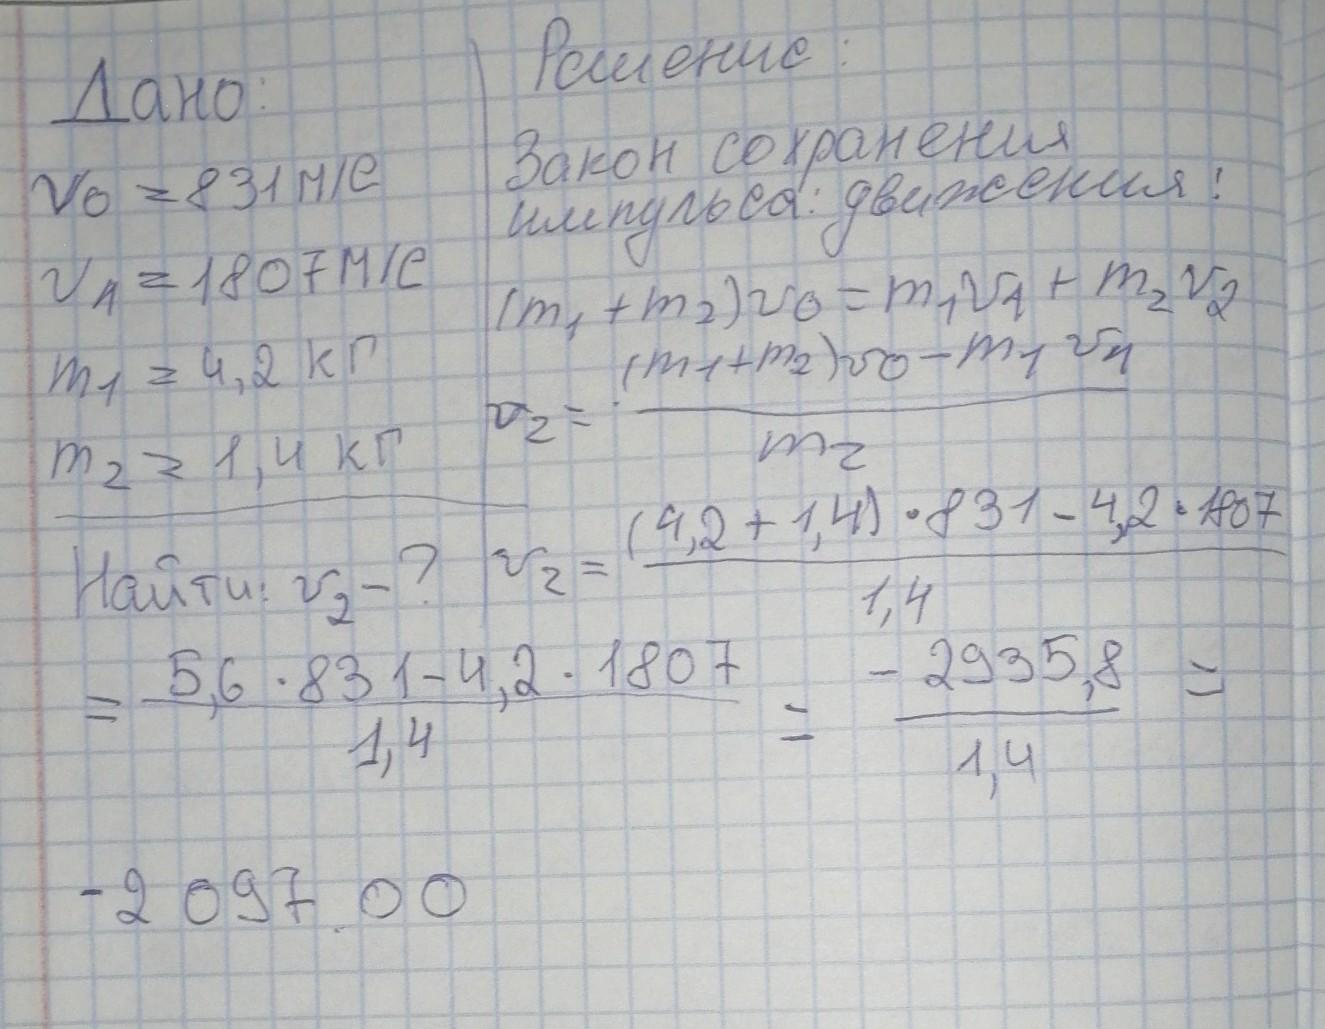 Дано:
v0 = 831 м/с
v1 = 1807 м/с
m1 = 4,2 кг
m2 = 1,4 кг
Найти: v2 - ?
Решение:
Закон сохранения
импульса: движения:
(m1 + m2)v0 = m1v1 + m2v2
v2 = (m1+m2)v0 - m1 v1 / m2
v2 = (4,2 + 1,4) · 831 - 4,2 · 1807 / 1,4
= 5,6 · 831 - 4,2 · 1807 / 1,4 = - 2935,8 / 1,4 =
-2097.00